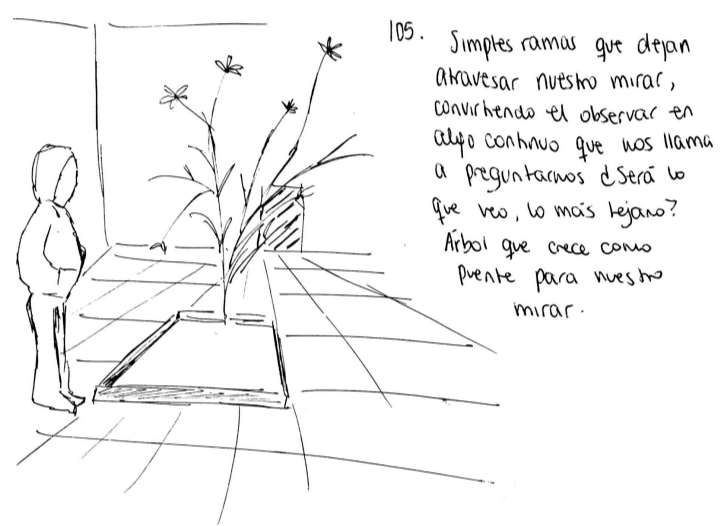 105.
Simples ramas que dejan
atravesar nuestro mirar,
convirtiendo el observar en
algo continuo que nos llama
a preguntarnos ¿Será lo
que veo, lo más lejano?
Árbol que crece como
puente para nuestro
mirar.